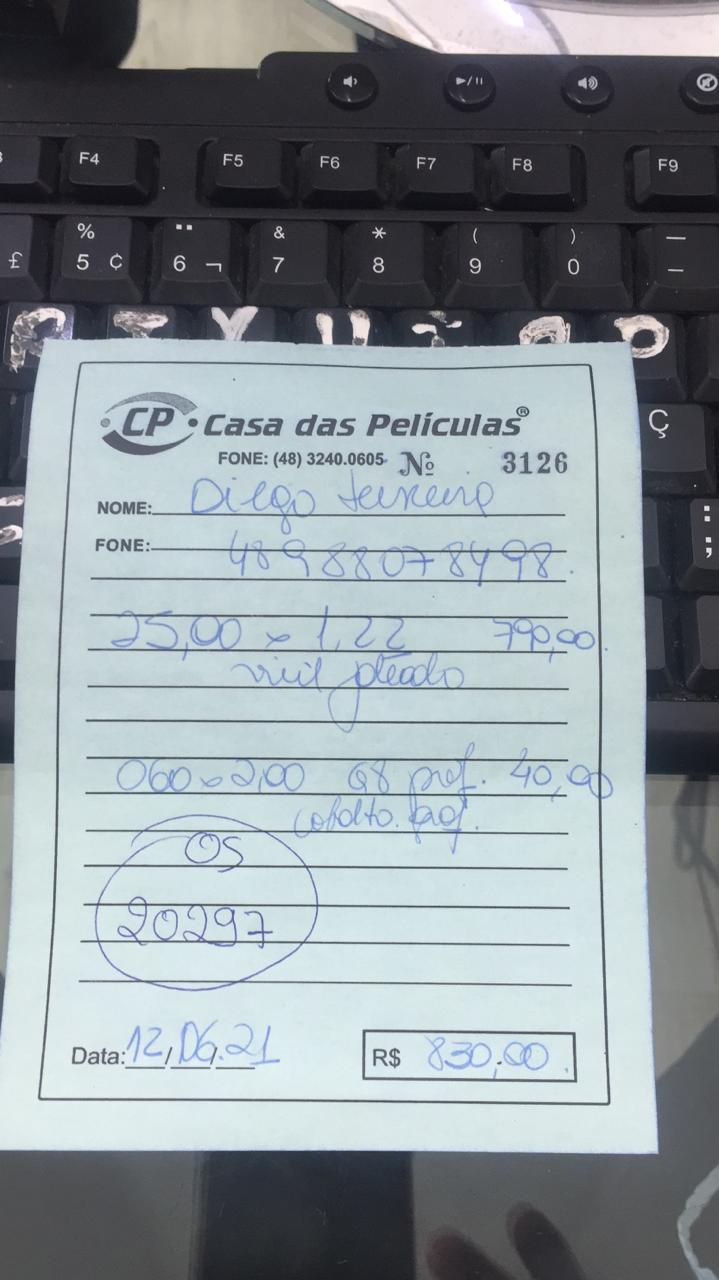 F4 F5 F6 F7 F8 F9
£ % 5 ¢ ¨ 6 ¬ & 7 * 8 ( 9 ) 0 — –
R T Y U I O P
Ç
: ;
CP Casa das Películas®
FONE: (48) 3240.0605 No 3126
NOME: Diego Teixeira
FONE: 48988078498
25,00 x 1,22 790,00
vinil jateado
060 x 2,00 G8 prof. 40,00
cobalto. prof.
OS
20297
Data: 12/06/21 R$ 830,00